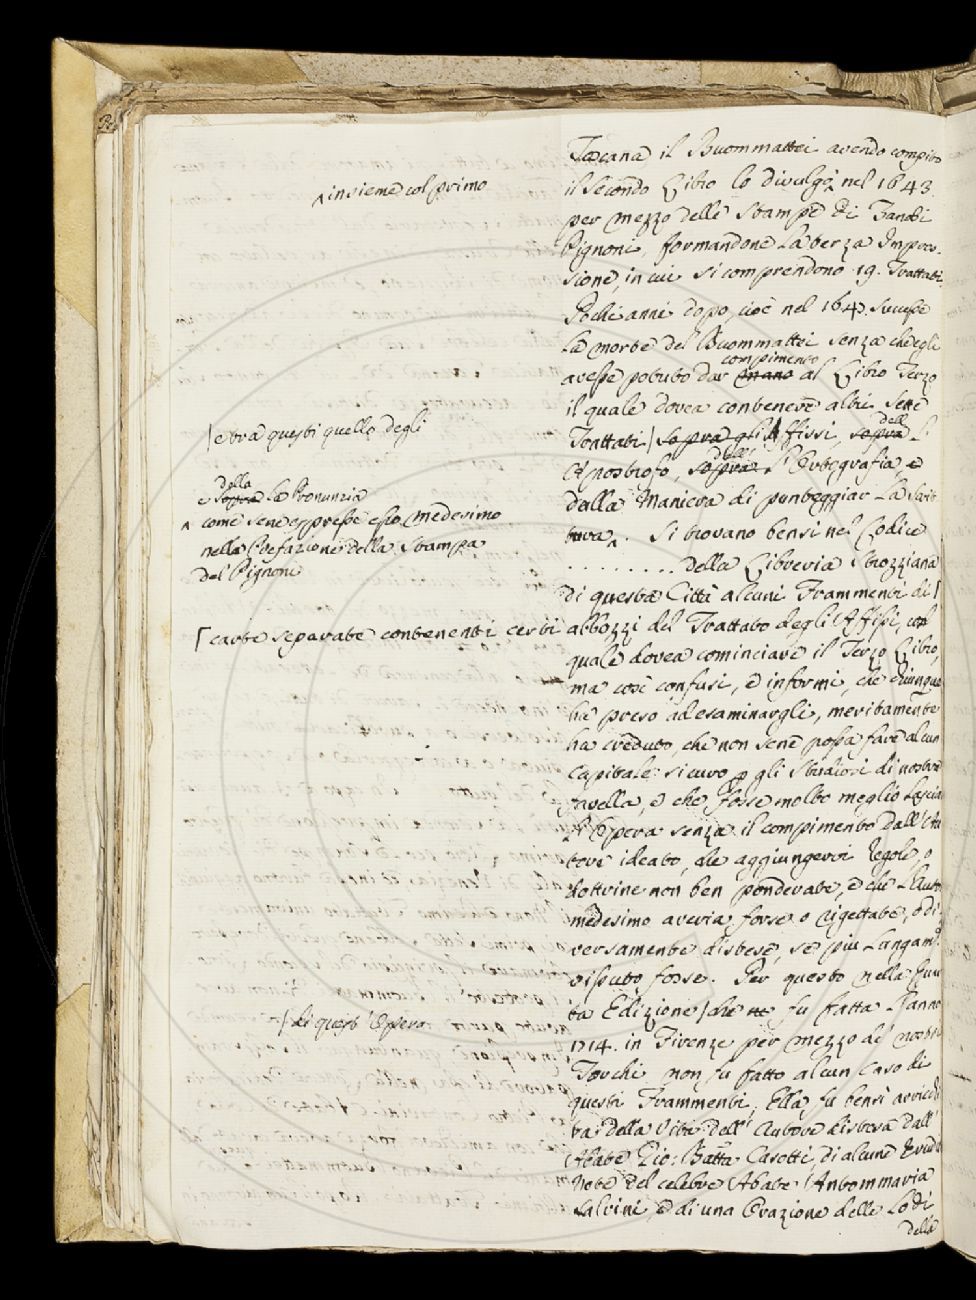 Toscana il Buommattei avendo compito
^ insieme col primo
il Secondo Libro lo divulgò ^ nel 1643.
per mezzo delle Stampe di Zanobi
Pignoni, formandone la terza Impres-
sione, in cui si comprendono 19. Trattati.
Pochi anni dopo, cioè nel 164 . successe
La morte del Buommattei senza che egli
compimento
avesse potuto dar mano al Libro Terzo
il quale dovea contenere altri Sette
| e tra questi quello degli
dell
Trattati | sopra gli Affissi, sopra l'
dell'
Apostrofo, sopra l'Ortografia, e
della Maniera di punteggiar la Scrit
della
e sopra la Pronunzia
^ come sene espresse esso medesimo
nella Prefazione della Stampa
del Pignoni
tura ^. Si trovano bensi nel Codice
. . . . . . . . . della Libreria Strozziana
di questa Città alcuni Frammenti di [
[ carte separate contenenti certi abbozzi del Trattato degli Affissi, col
quale dovea cominciare il Terzo Libro,
ma così confusi, e informi, che chiunque
ha preso ad esaminargli, meritamente
ha creduto, che non sene possa fare alcun
capitale sicuro p gli Studiosi di nostra
favella, e che forse molto meglio lascia
l'Opera senza il compimento dall'Au
tore ideato, che aggiungervi regole, o
dottrine non ben ponderate, e che l'Auto
medesimo averia forse o rigettate, o di-
versamente distese, se più lungam.e
vissuto fosse. Per questo nella
| di quest' Opera
ta Edizione | che fu fatta l'anno
1714. in Firenze per mezzo de' nostri
Torchi non fu fatto alcun caso di
questi Frammenti. Ella fu bensì arricchi
ta della Vita dell' Autore distesa dall'
Abate Gio: Batta Casotti, di alcune erudite
Note del celebre Abate Antommaria
Salvini, e di una Orazione delle Lodi
della